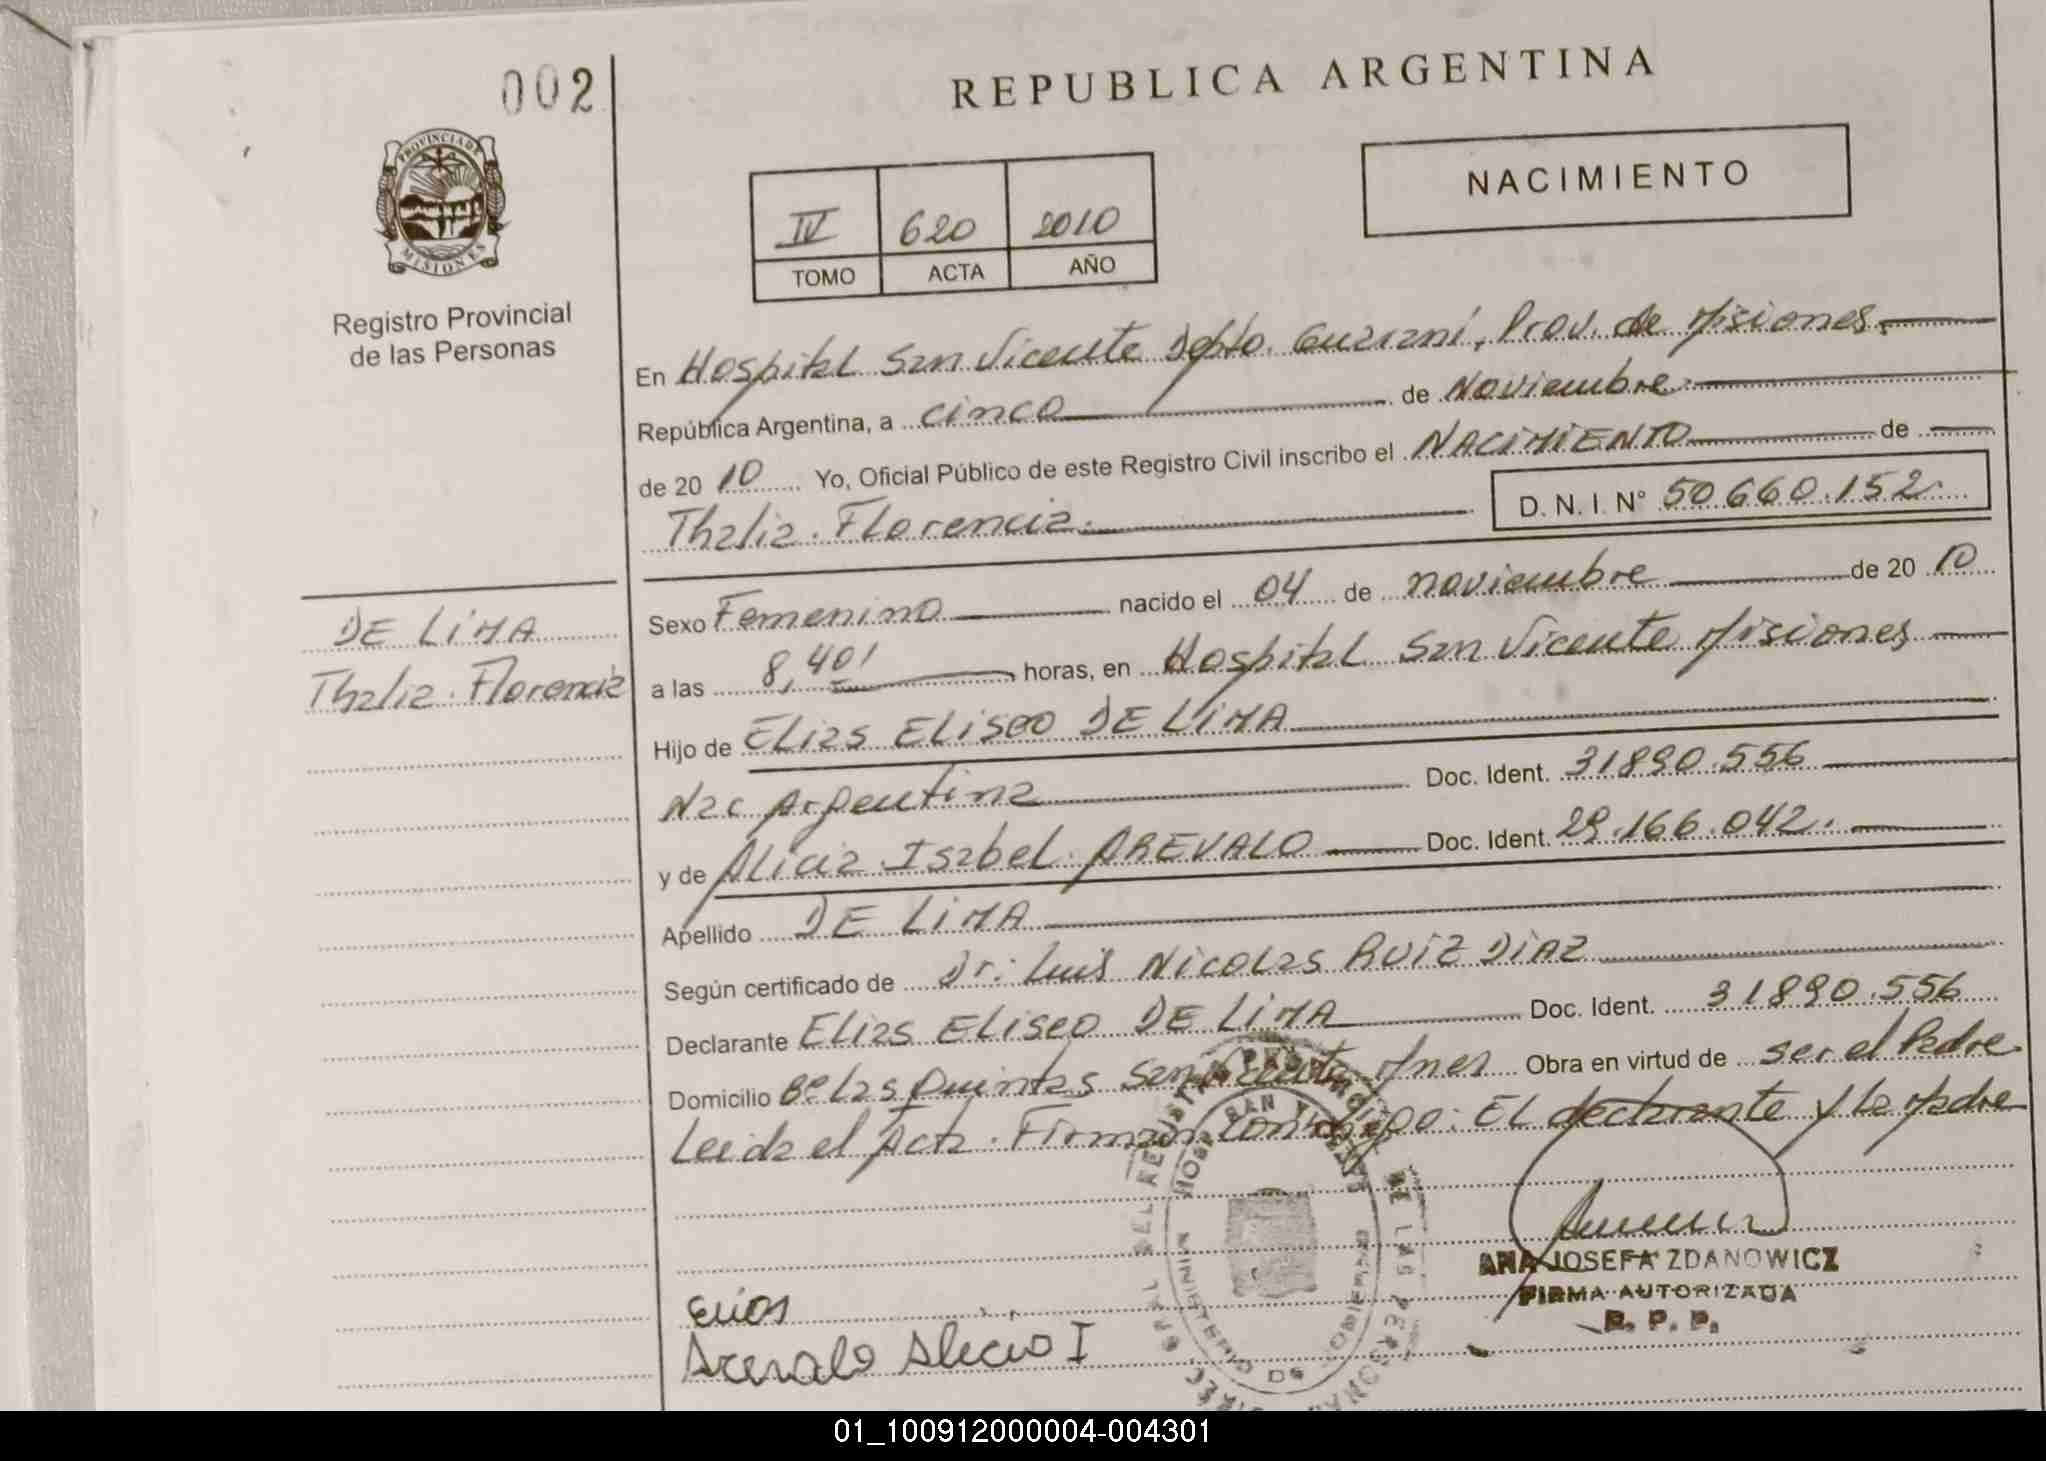 002
REPUBLICA ARGENTINA
PROVINCIA DE
MISIONES
Registro Provincial
de las Personas
NACIMIENTO
IV 620 2010
TOMO ACTA AÑO
En Hospital San Vicente Dpto. Guaraní, Prov. de Misiones.
República Argentina, a cinco de Noviembre
de 20 10 Yo, Oficial Público de este Registro Civil inscribo el NACIMIENTO de
Thalia Florencia D. N. I. N° 50660.152
DE LIMA
Thalia Florencia
Sexo Femenino nacido el 04 de noviembre de 20 10
a las 8,40 horas, en Hospital San Vicente Misiones
Hijo de Elias Eliseo DE LIMA
Nac Argentina Doc. Ident. 31890.556
y de Alicia Isabel AREVALO Doc. Ident. 29.166.042.
Apellido DE LIMA
Según certificado de Dr: Luis Nicolas RUIZ DIAZ
Declarante Elias Eliseo DE LIMA Doc. Ident. 31890.556
Domicilio Bº Las Quintas San Vicente Mnes Obra en virtud de ser el Padre
Leida el Acta. Firman conmigo: El declarante y la Madre
ANA JOSEFA ZDANOWICZ
FIRMA AUTORIZADA
R. P. P.
Arevalo Alicia I
01_100912000004-004301